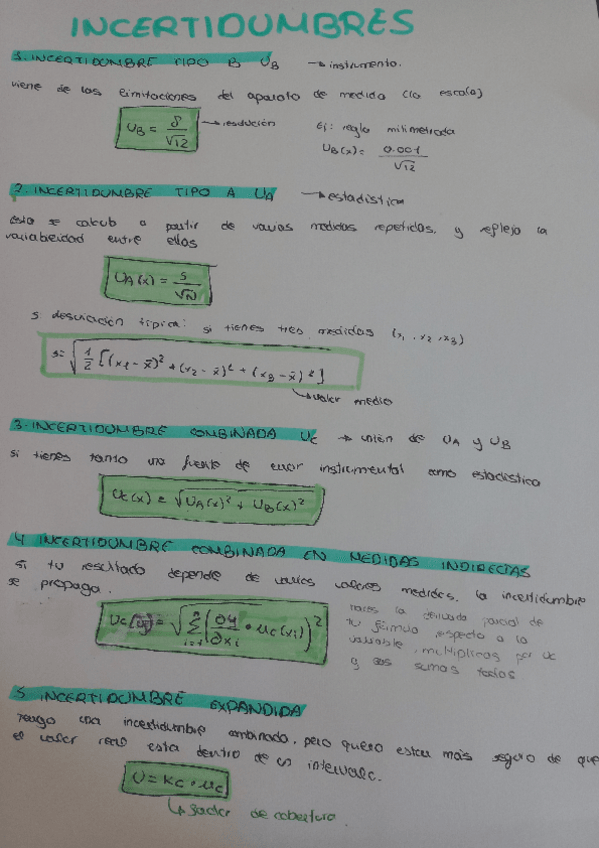 INCERTIDUMBRES
1. INCERTIDUMBRE TIPO B U_B → instrumento.
viene de las limitaciones del aparato de medida (la escala)
U_B = δ/√12 → resolución
Ej: regla milimetrada
U_B(x) = 0.001/√12
2. INCERTIDUMBRE TIPO A U_A → estadística
esta se calcula a partir de varias medidas repetidas, y refleja la
variabilidad entre ellas
U_A(x) = s/√N
s desviación típica: si tienes tres medidas (x₁, x₂, x₃)
s = √(1/2 [(x₁ - x̄)² + (x₂ - x̄)² + (x₃ - x̄)²])
↳ valor medio
3. INCERTIDUMBRE COMBINADA U_C → unión de U_A y U_B
si tienes tanto una fuente de error instrumental como estadístico
U_C(x) = √(U_A(x)² + U_B(x)²)
4 INCERTIDUMBRE COMBINADA EN MEDIDAS INDIRECTAS
si tu resultado depende de varios valores medidos, la incertidumbre
se propaga.
U_C(y) = √(Σ_{i=1}^{n} (∂y/∂x_i · u_C(x_i))²)
haces la derivada parcial de
tu fórmula respecto a la
variable, multiplicas por u_C
y las sumas todas
5 INCERTIDUMBRE EXPANDIDA
Tengo una incertidumbre combinada, pero quiero estar más seguro de que
el valor real esta dentro de un intervalo.
U = K_C · u_C
↳ factor de cobertura.